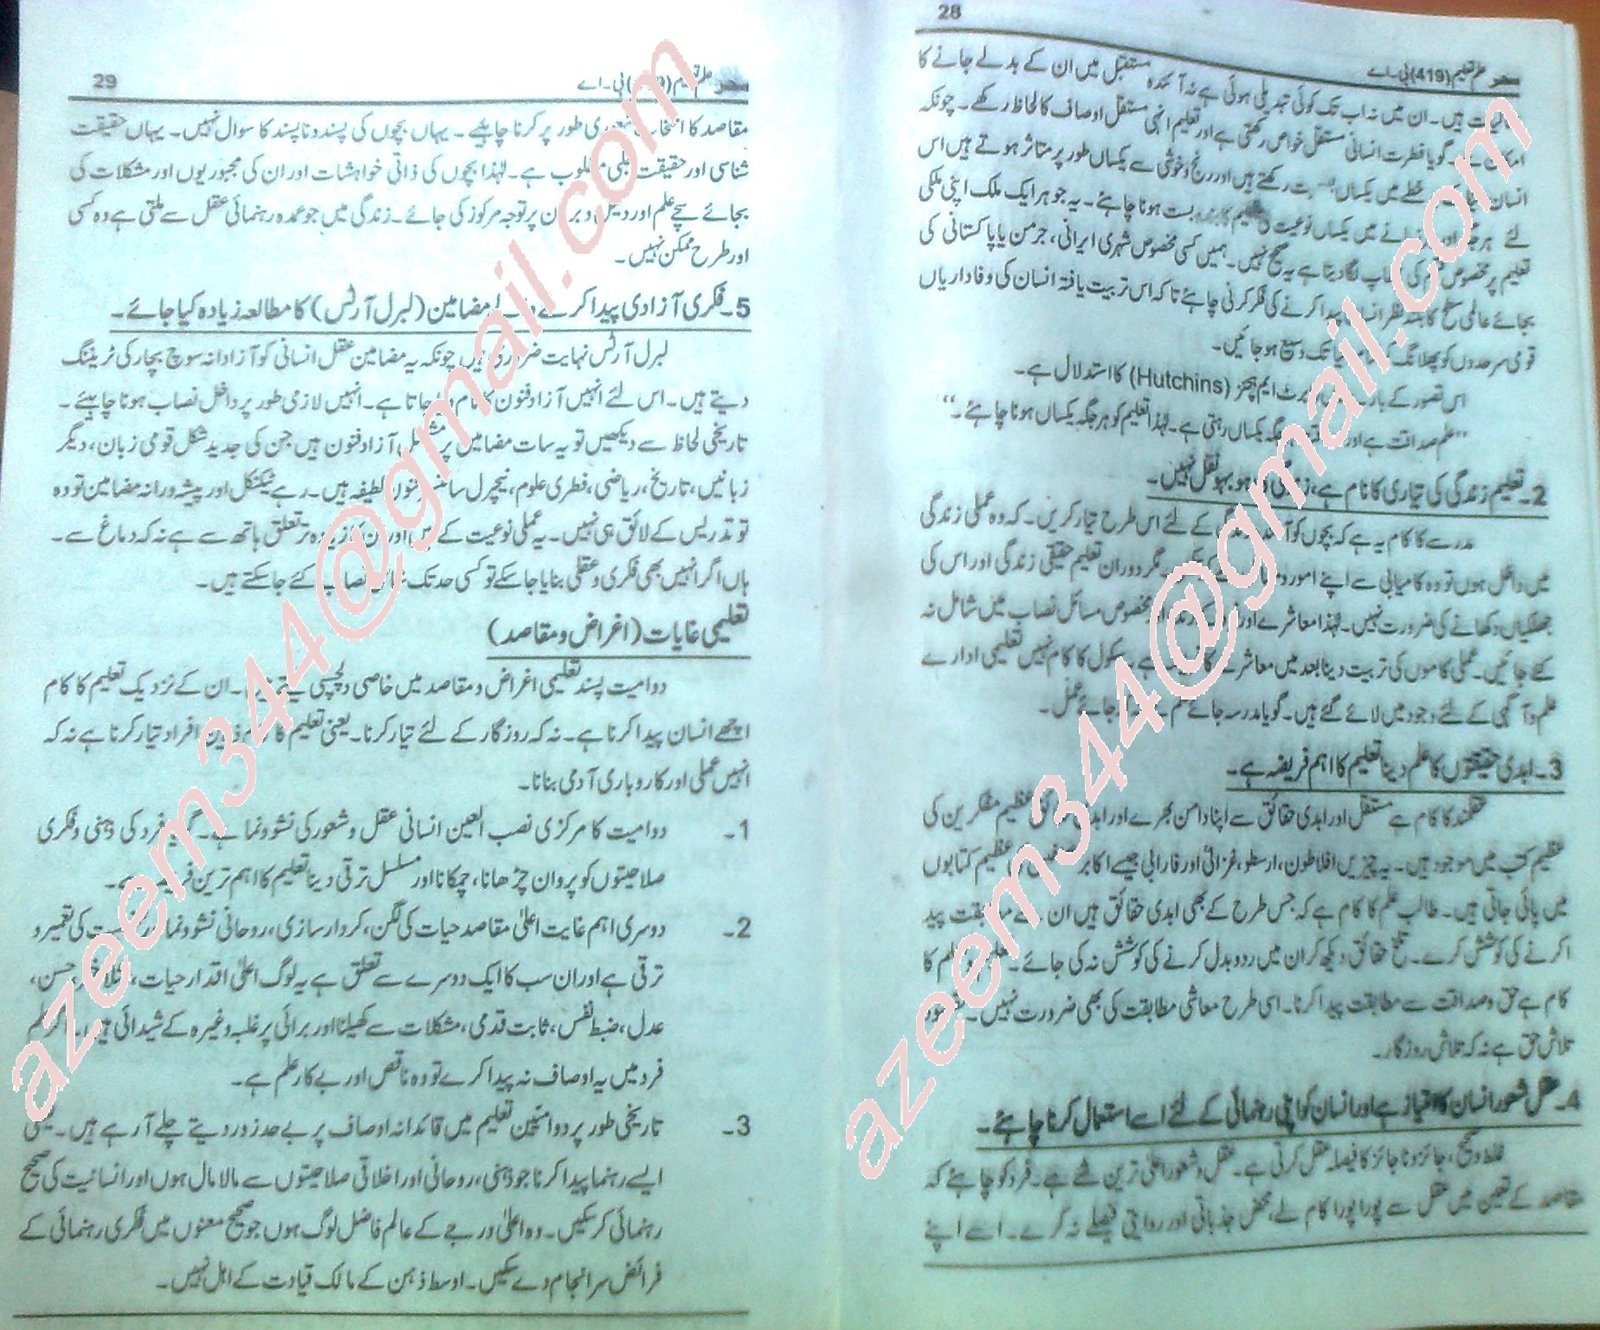 28
علم تعلیم (419) بی۔اے
ہیں۔ ان میں نہ اب تک کوئی تبدیلی ہوئی ہے نہ آئندہ مستقبل میں ان کے بدلے جانے کا
گویا فطرت انسانی مستقل خواص رکھتی ہے اور تعلیم انہی مستقل اوصاف کا لحاظ رکھے۔ چونکہ
انسان خطے میں یکساں رکھتے ہیں اور رنج و خوشی سے یکساں طور پر متاثر ہوتے ہیں اس
لئے ہر جگہ اور میں یکساں نوعیت کی بست ہونا چاہئے۔ یہ جو ہر ایک ملک اپنی ملکی
تعلیم پر مخصوص کی لگا دیتا ہے یہ صحیح نہیں۔ ہمیں کسی مخصوص شہری ایرانی، جرمن یا پاکستانی کی
بجائے عالمی سطح کا انسان پیدا کرنے کی فکر کرنی چاہئے تاکہ اس تربیت یافتہ انسان کی وفاداریاں
قومی سرحدوں کو پھلانگ تک وسیع ہو جائیں۔
اس تصور کے ایم ہچنز (Hutchins) کا استدلال ہے۔
"علم صداقت ہے اور جگہ یکساں رہتی ہے۔ لہٰذا تعلیم کو ہر جگہ یکساں ہونا چاہئے۔"
2۔ تعلیم زندگی کی تیاری کا نام ہے، ہو بہو نقل نہیں۔
مدرسے کا کام یہ ہے کہ بچوں کو کے لئے اس طرح تیار کریں۔ کہ وہ عملی زندگی
میں داخل ہوں تو وہ کامیابی سے اپنے امور مگر دوران تعلیم حقیقی زندگی اور اس کی
جھلکیاں دکھانے کی ضرورت نہیں۔ لہٰذا معاشرے اور مخصوص مسائل نصاب میں شامل نہ
کئے جائیں۔ عملی کاموں کی تربیت دینا بعد میں معاشرے ہے، سکول کا کام نہیں تعلیمی ادارے
علم و آگہی کے لئے وجود میں لائے گئے ہیں۔ گویا مدرسہ جائے علم جائے عمل۔
3۔ ابدی حقیقتوں کا علم دینا تعلیم کا اہم فریضہ ہے۔
عقلمند کا کام ہے مستقل اور ابدی حقائق سے اپنا دامن بھرے اور ابدی عظیم مفکرین کی
عظیم کتب میں موجود ہیں۔ یہ چیزیں افلاطون، ارسطو، غزالی اور فارابی جیسے اکابر عظیم کتابوں
میں پائی جاتی ہیں۔ طالب علم کا کام ہے کہ جس طرح کے بھی ابدی حقائق ہیں ان سے مطابقت پیدا
کرنے کی کوشش کرے۔ تلخ حقائق دیکھ کر ان میں ردوبدل کرنے کی کوشش نہ کی جائے۔ کا
کام ہے حق و صداقت سے مطابقت پیدا کرنا۔ اسی طرح معاشی مطابقت کی بھی ضرورت نہیں۔ مقصود
تلاش حق ہے نہ کہ تلاش روزگار۔
4۔ عقل و شعور انسان کا امتیاز ہے اور انسان کو اپنی رہنمائی کے لئے اسے استعمال کرنا چاہئے۔
غلط و صحیح، جائز و ناجائز کا فیصلہ عقل کرتی ہے۔ عقل و شعور اعلیٰ ترین شے ہے۔ فرد کو چاہئے کہ
مقاصد کے تعین میں عقل سے پورا پورا کام لے، محض جذباتی اور روایتی فیصلے نہ کرے۔ اسے اپنے
29
علم تعلیم بی۔اے
مقاصد کا انتخاب شعوری طور پر کرنا چاہیے۔ یہاں بچوں کی پسند و ناپسند کا سوال نہیں۔ یہاں حقیقت
شناسی اور حقیقت طلبی مطلوب ہے۔ لہٰذا بچوں کی ذاتی خواہشات اور ان کی مجبوریوں اور مشکلات کی
بجائے سچے علم اور دلیل و برہان پر توجہ مرکوز کی جائے۔ زندگی میں جو عمدہ رہنمائی عقل سے ملتی ہے وہ کسی
اور طرح ممکن نہیں۔
5۔ فکری آزادی پیدا کرنے والے مضامین (لبرل آرٹس) کا مطالعہ زیادہ کیا جائے۔
لبرل آرٹس نہایت ضروری ہیں چونکہ یہ مضامین عقل انسانی کو آزادانہ سوچ بچار کی ٹریننگ
دیتے ہیں۔ اس لئے انہیں آزاد فنون کا نام دیا جاتا ہے۔ انہیں لازمی طور پر داخل نصاب ہونا چاہیئے۔
تاریخی لحاظ سے دیکھیں تو یہ سات مضامین پر مشتمل آزاد فنون ہیں جن کی جدید شکل قومی زبان، دیگر
زبانیں، تاریخ، ریاضی، فطری علوم، نیچرل سائنس فنون لطیفہ ہیں۔ رہے ٹیکنیکل اور پیشہ ورانہ مضامین تو وہ
تو تدریس کے لائق ہی نہیں۔ یہ عملی نوعیت کے ہیں اور ان کا زیادہ تر تعلق ہاتھ سے ہے نہ کہ دماغ سے۔
ہاں اگر انہیں بھی فکری و عقلی بنایا جا سکے تو کسی حد تک شامل نصاب کئے جا سکتے ہیں۔
تعلیمی غایات (اغراض و مقاصد)
دوامیت پسند تعلیمی اغراض و مقاصد میں خاصی دلچسپی لیتے ہیں۔ ان کے نزدیک تعلیم کا کام
اچھے انسان پیدا کرنا ہے۔ نہ کہ روزگار کے لئے تیار کرنا۔ یعنی تعلیم کا کام ذہین افراد تیار کرنا ہے نہ کہ
انہیں عملی اور کاروباری آدمی بنانا۔
1۔ دوامیت کا مرکزی نصب العین انسانی عقل و شعور کی نشوونما ہے۔ گویا فرد کی ذہنی و فکری
صلاحیتوں کو پروان چڑھانا، چمکانا اور مسلسل ترقی دینا تعلیم کا اہم ترین فریضہ ہے۔
2۔ دوسری اہم غایت اعلیٰ مقاصد حیات کی لگن، کردار سازی، روحانی نشوونما کی تعمیر و
ترقی ہے اور ان سب کا ایک دوسرے سے تعلق ہے یہ لوگ اعلیٰ اقدار حیات، حسن،
عدل، ضبط نفس، ثابت قدمی، مشکلات سے کھیلنا اور برائی پر غلبہ وغیرہ کے شیدائی ہیں۔ اگر علم
فرد میں یہ اوصاف نہ پیدا کرے تو وہ ناقص اور بے کار علم ہے۔
3۔ تاریخی طور پر دوامیین تعلیم میں قائدانہ اوصاف پر بے حد زور دیتے چلے آ رہے ہیں۔ یعنی
ایسے رہنما پیدا کرنا جو ذہنی، روحانی اور اخلاقی صلاحیتوں سے مالا مال ہوں اور انسانیت کی صحیح
رہنمائی کر سکیں۔ وہ اعلیٰ درجے کے عالم فاضل لوگ ہوں جو صحیح معنوں میں فکری رہنمائی کے
فرائض سرانجام دے سکیں۔ اوسط ذہن کے مالک قیادت کے اہل نہیں۔
azeem344@gmail.com
azeem344@gmail.com